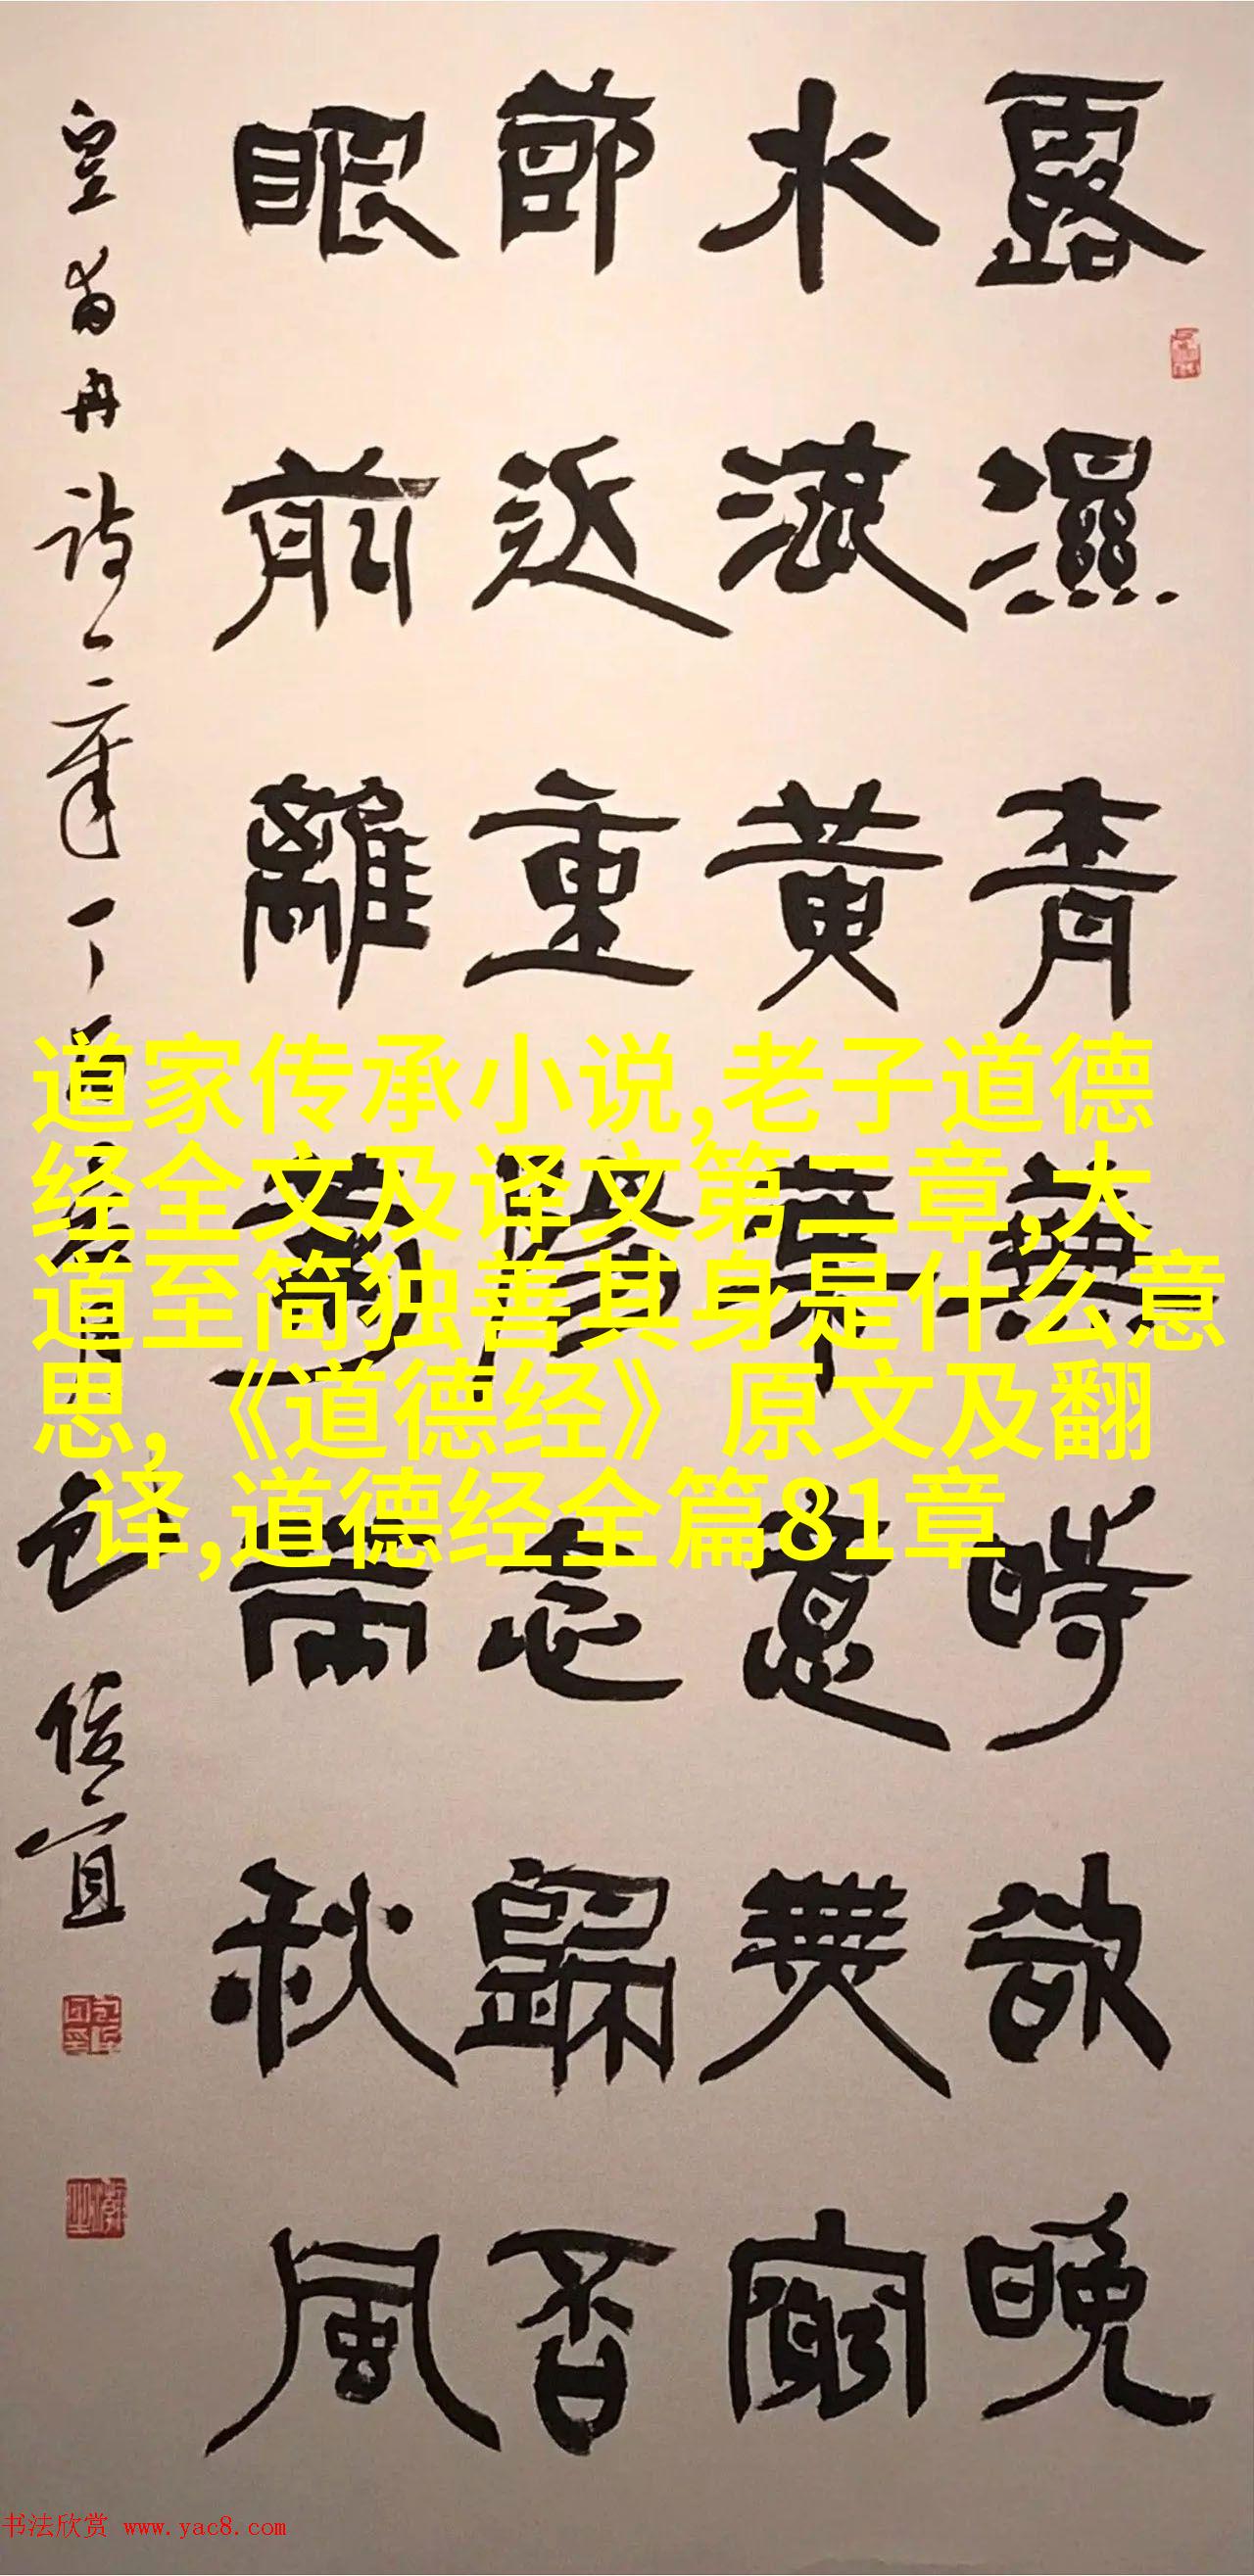 露濕青蕪時欲晚
水流黄葉意無窮
節近重陽念歸否
眼前離菊帶秋風
皇甫冉詩一章丁酉
道家传承小说,老子道德
经全文及译文第二章,大
道至简独善其身是什么意
思,《道德经》原文及翻
译,道德经全篇81章
书法欣赏 www.yac8.com